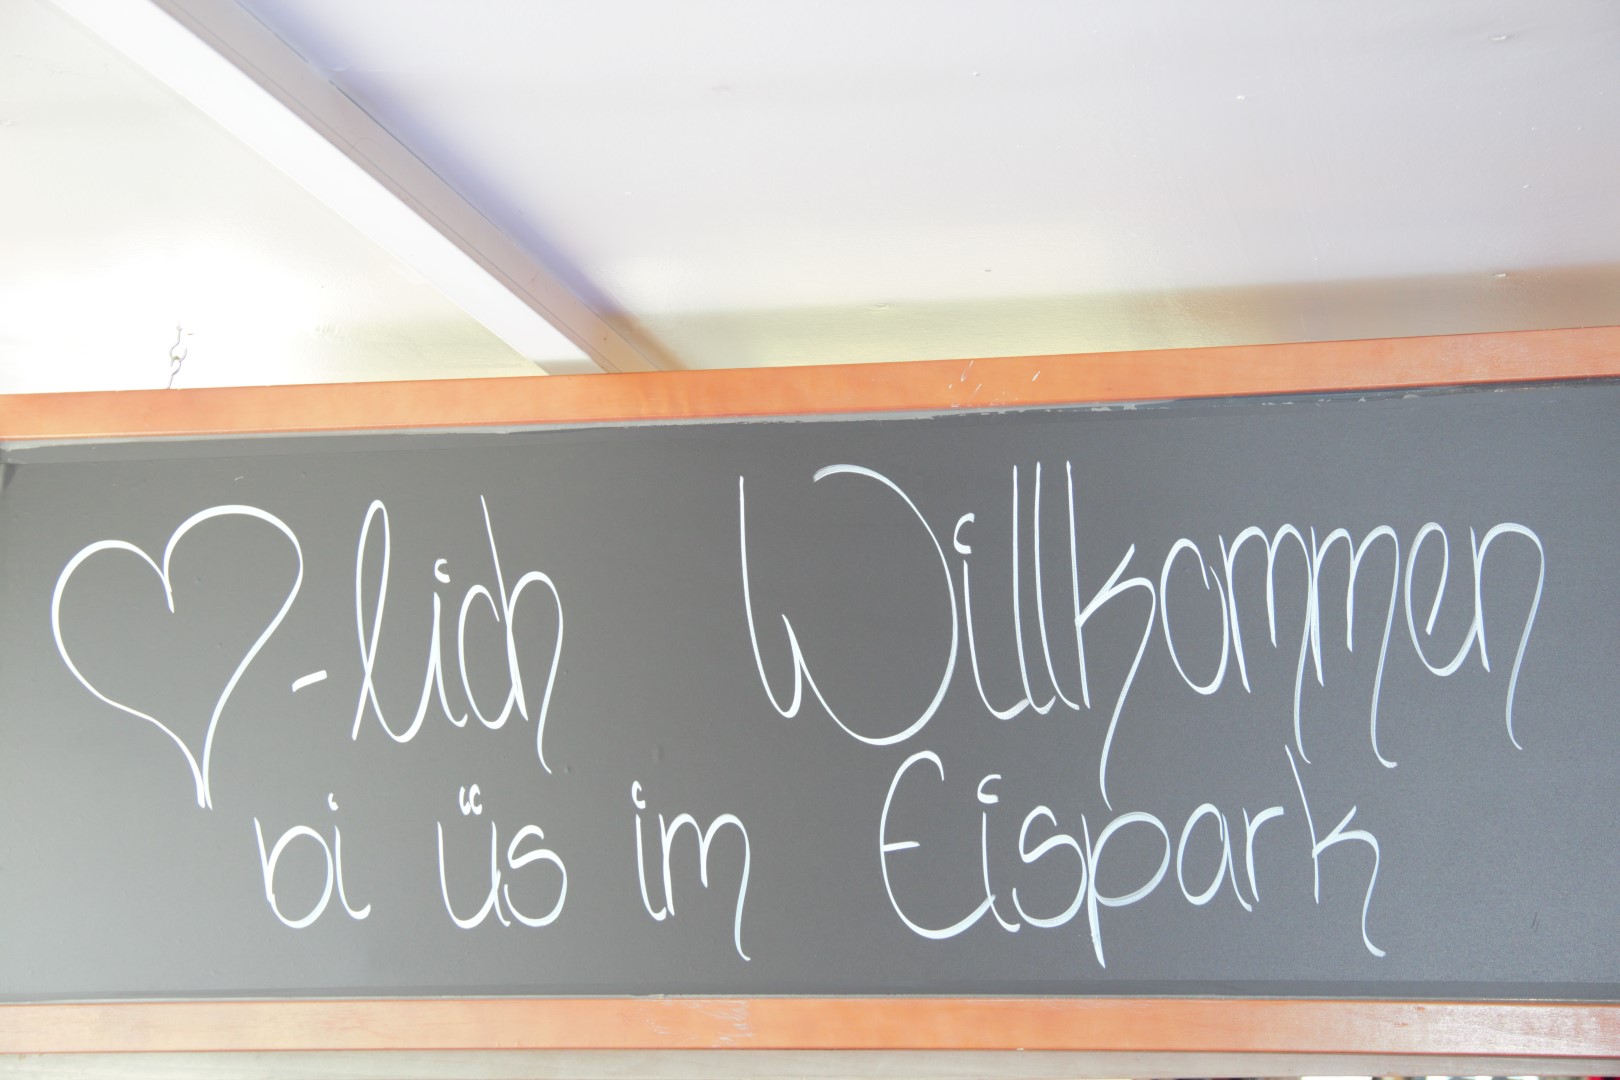 ♥-lich Willkommen
bi üs im Eispark